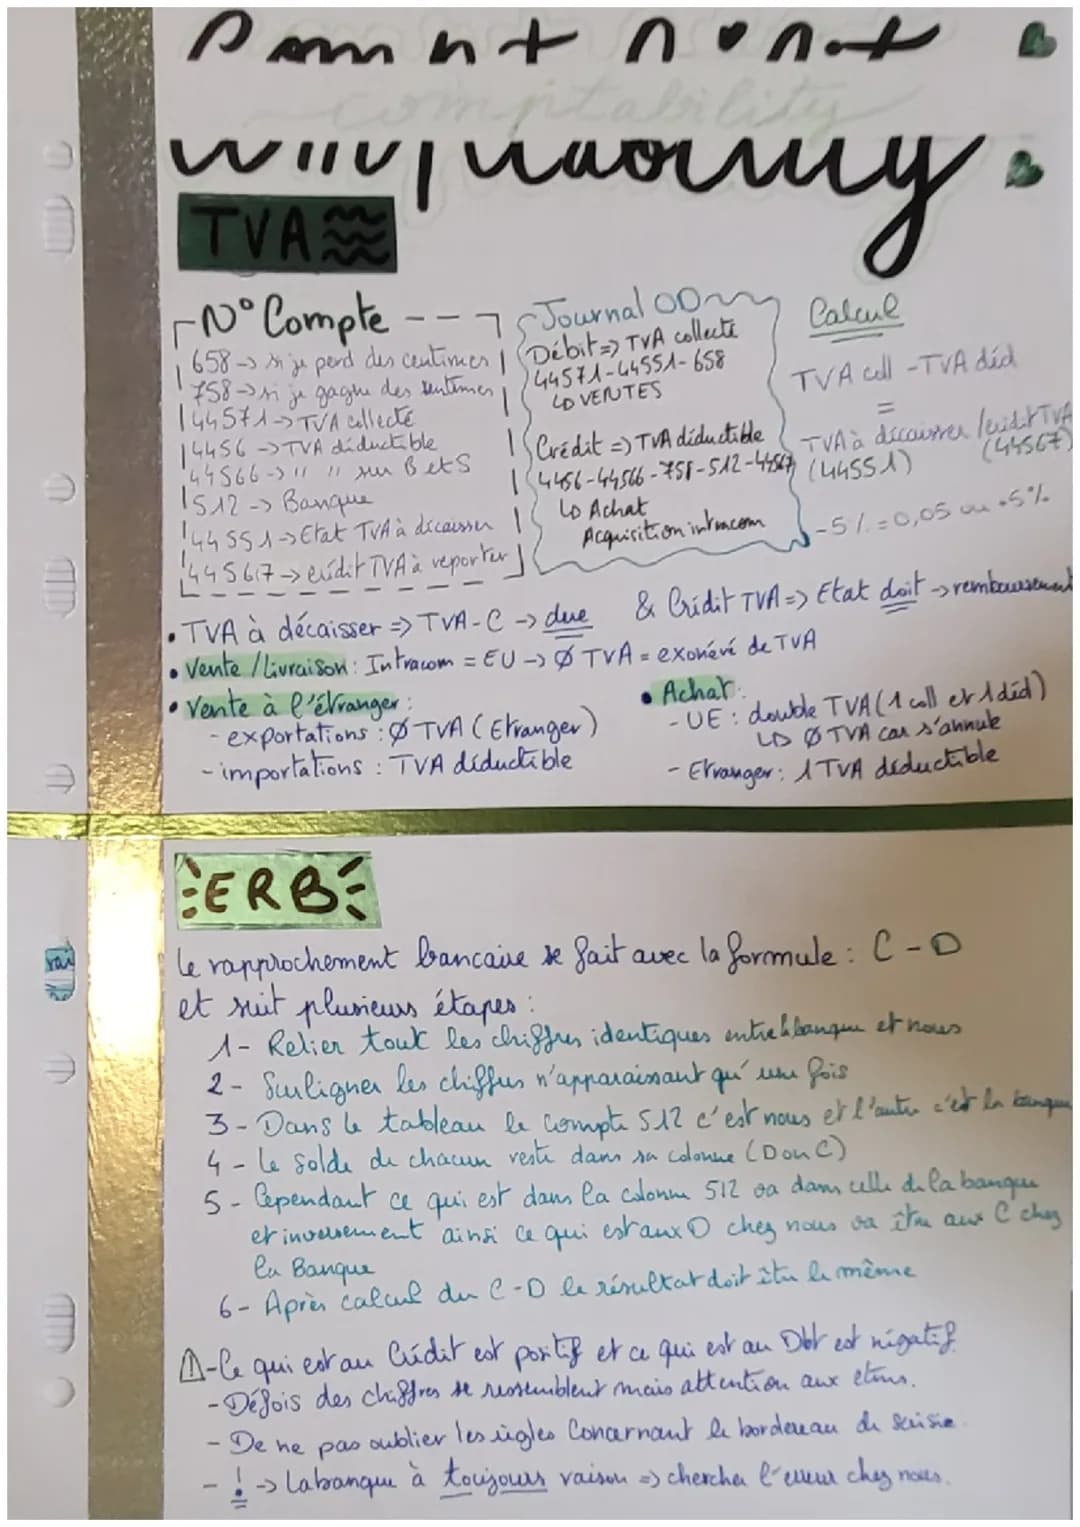 comptability
TVA
N° Compte
658 -> si je perd des centimes
758 -> si je gagne des centimes
44571 -> TVA collecté
4456 -> TVA déductible
44566 -> " " sur B et S
512 -> Banque
44551 -> Etat TVA à décaisser
445617 -> crédit TVA à reporter
Journal OD
Débit => TVA collecté
44571-44551-658
↳ VENTES
Crédit => TVA déductible
4456-44566-758-512-44567
↳ Achat
Acquisition intracom
Calcul
TVA coll - TVA déd
=
TVA à décaisser / crédit TVA
(44551) (44567)
-5% = 0,05 ou .5%
• TVA à décaisser => TVA-C -> due & Crédit TVA => Etat doit -> remboursement
• Vente / Livraison : Intracom = EU -> Ø TVA = exonéré de TVA
• Vente à l'étranger :
- exportations : Ø TVA (Etranger)
- importations : TVA déductible
• Achat :
- UE : double TVA (1 coll et 1 déd)
↳ Ø TVA car s'annule
- Etranger : 1 TVA déductible
ERB
Le rapprochement bancaire se fait avec la formule : C - D
et suit plusieurs étapes :
1- Relier tout les chiffres identiques entre la banque et nous
2- Surligner les chiffres n'apparaissant qu'une fois
3- Dans le tableau le compte 512 c'est nous et l'autre c'est la banque
4- Le solde de chacun reste dans sa colonne (D ou C)
5- Cependant ce qui est dans la colonne 512 va dans celle de la banque
et inversement ainsi ce qui est aux D chez nous va être aux C chez
la Banque
6- Après calcul du C-D le résultat doit être le même
⚠-Ce qui est au Crédit est positif et ce qui est au Dbt est négatif
- Défois des chiffres se ressemblent mais attention aux
- De ne pas oublier les règles Concernant le bordereau de saisie.
- ! -> La banque à toujours raison => chercher l'erreur chez nous.